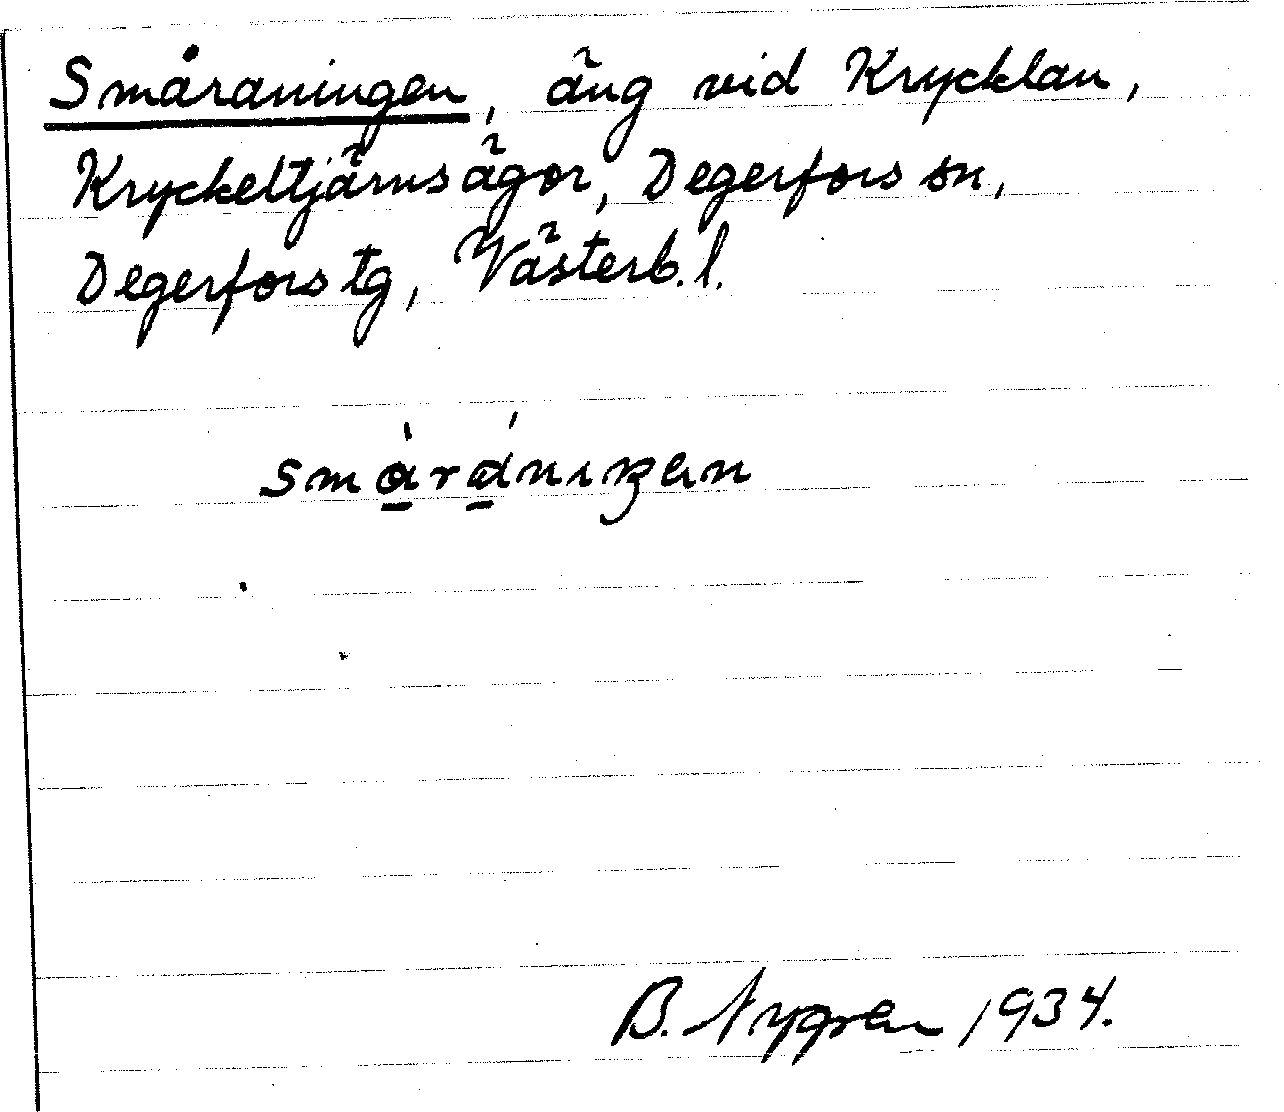 Småraningen, äng vid Krycklan,
Kryckeltjärnsägor, Degerfors sn,
Degerfors tg, Västerb. l.
B. Nygren 1934.